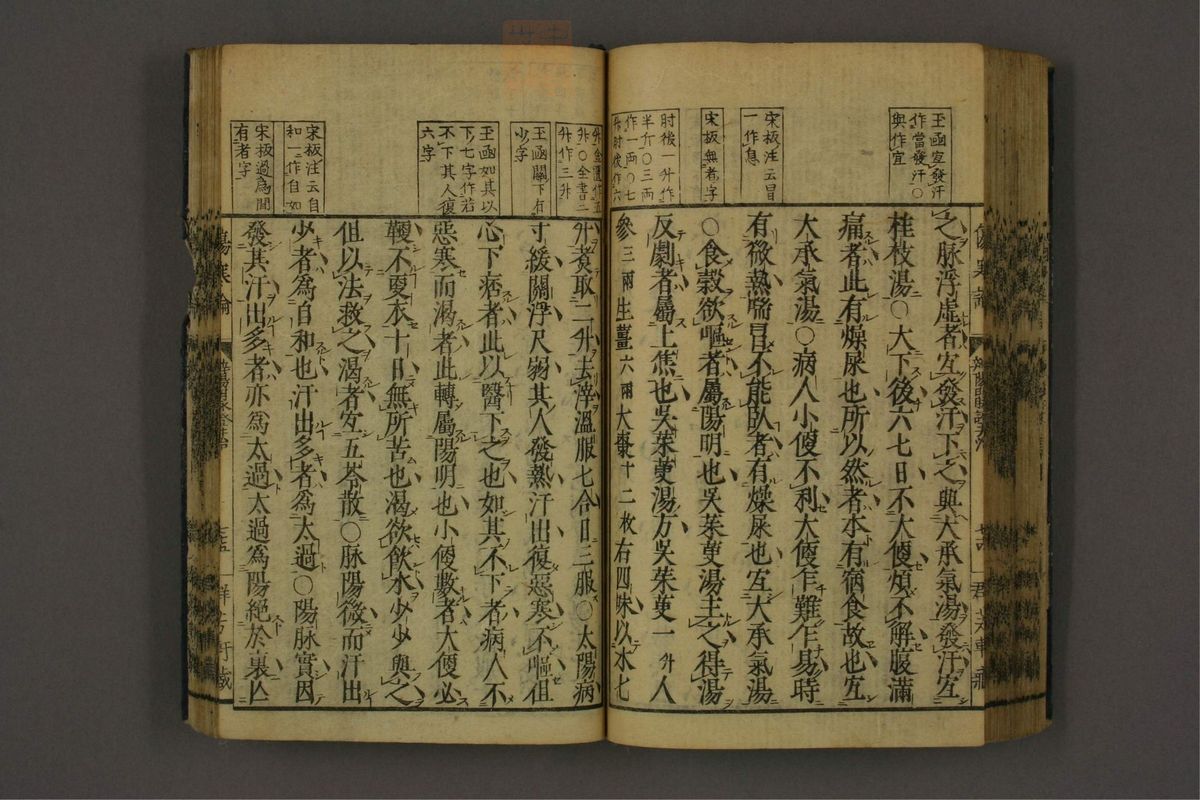 玉函宜發汗
作當發汗○
與作宜
宋板注云冒
一作息
宋板無者字
肘後一升作
半斤○三兩
作一兩○七
升肘後作六
之脉浮虛者宜發汗下之與大承氣湯發汗宜
桂枝湯○大下後六七日不大便煩不解腹滿
痛者此有燥屎也所以然者本有宿食故也宜
大承氣湯○病人小便不利大便乍難乍易時
有微熱喘冒不能臥者有燥屎也宜大承氣湯
○食穀欲嘔者屬陽明也吳茱萸湯主之得湯
反劇者屬上焦也吳茱萸湯方吳茱萸一升人
參三兩生薑六兩大棗十二枚右四味以水七
升金匱作五
升○全書二
升作三升
玉函關下有
少字
玉函如其以
下七字作若
不下其人復
六字
宋板注云自
和一作自如
宋板過為間
有者字
升煮取二升去滓溫服七合日三服○太陽病
寸緩關浮尺弱其人發熱汗出復惡寒不嘔但
心下痞者此以醫下之也如其不下者病人不
惡寒而渴者此轉屬陽明也小便數者大便必
鞕不更衣十日無所苦也渴欲飲水少少與之
但以法救之渴者宜五苓散○脉陽微而汗出
少者為自和也汗出多者為太過○陽脉實因
發其汗出多者亦為太過太過為陽絕於裏亡
傷寒論